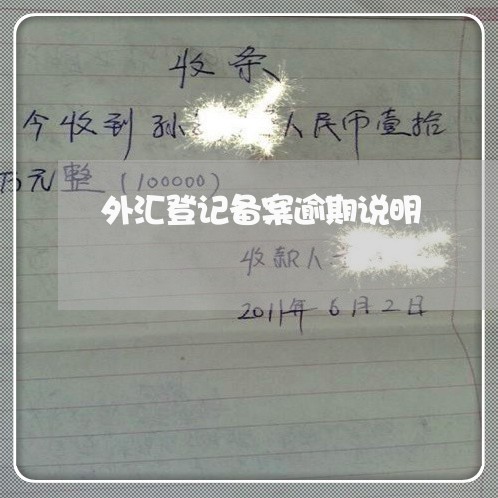 收条
今收到孙 人民币壹拾
万元整（100000）
外汇登记备案逾期说明
收款人
2011年6月2日